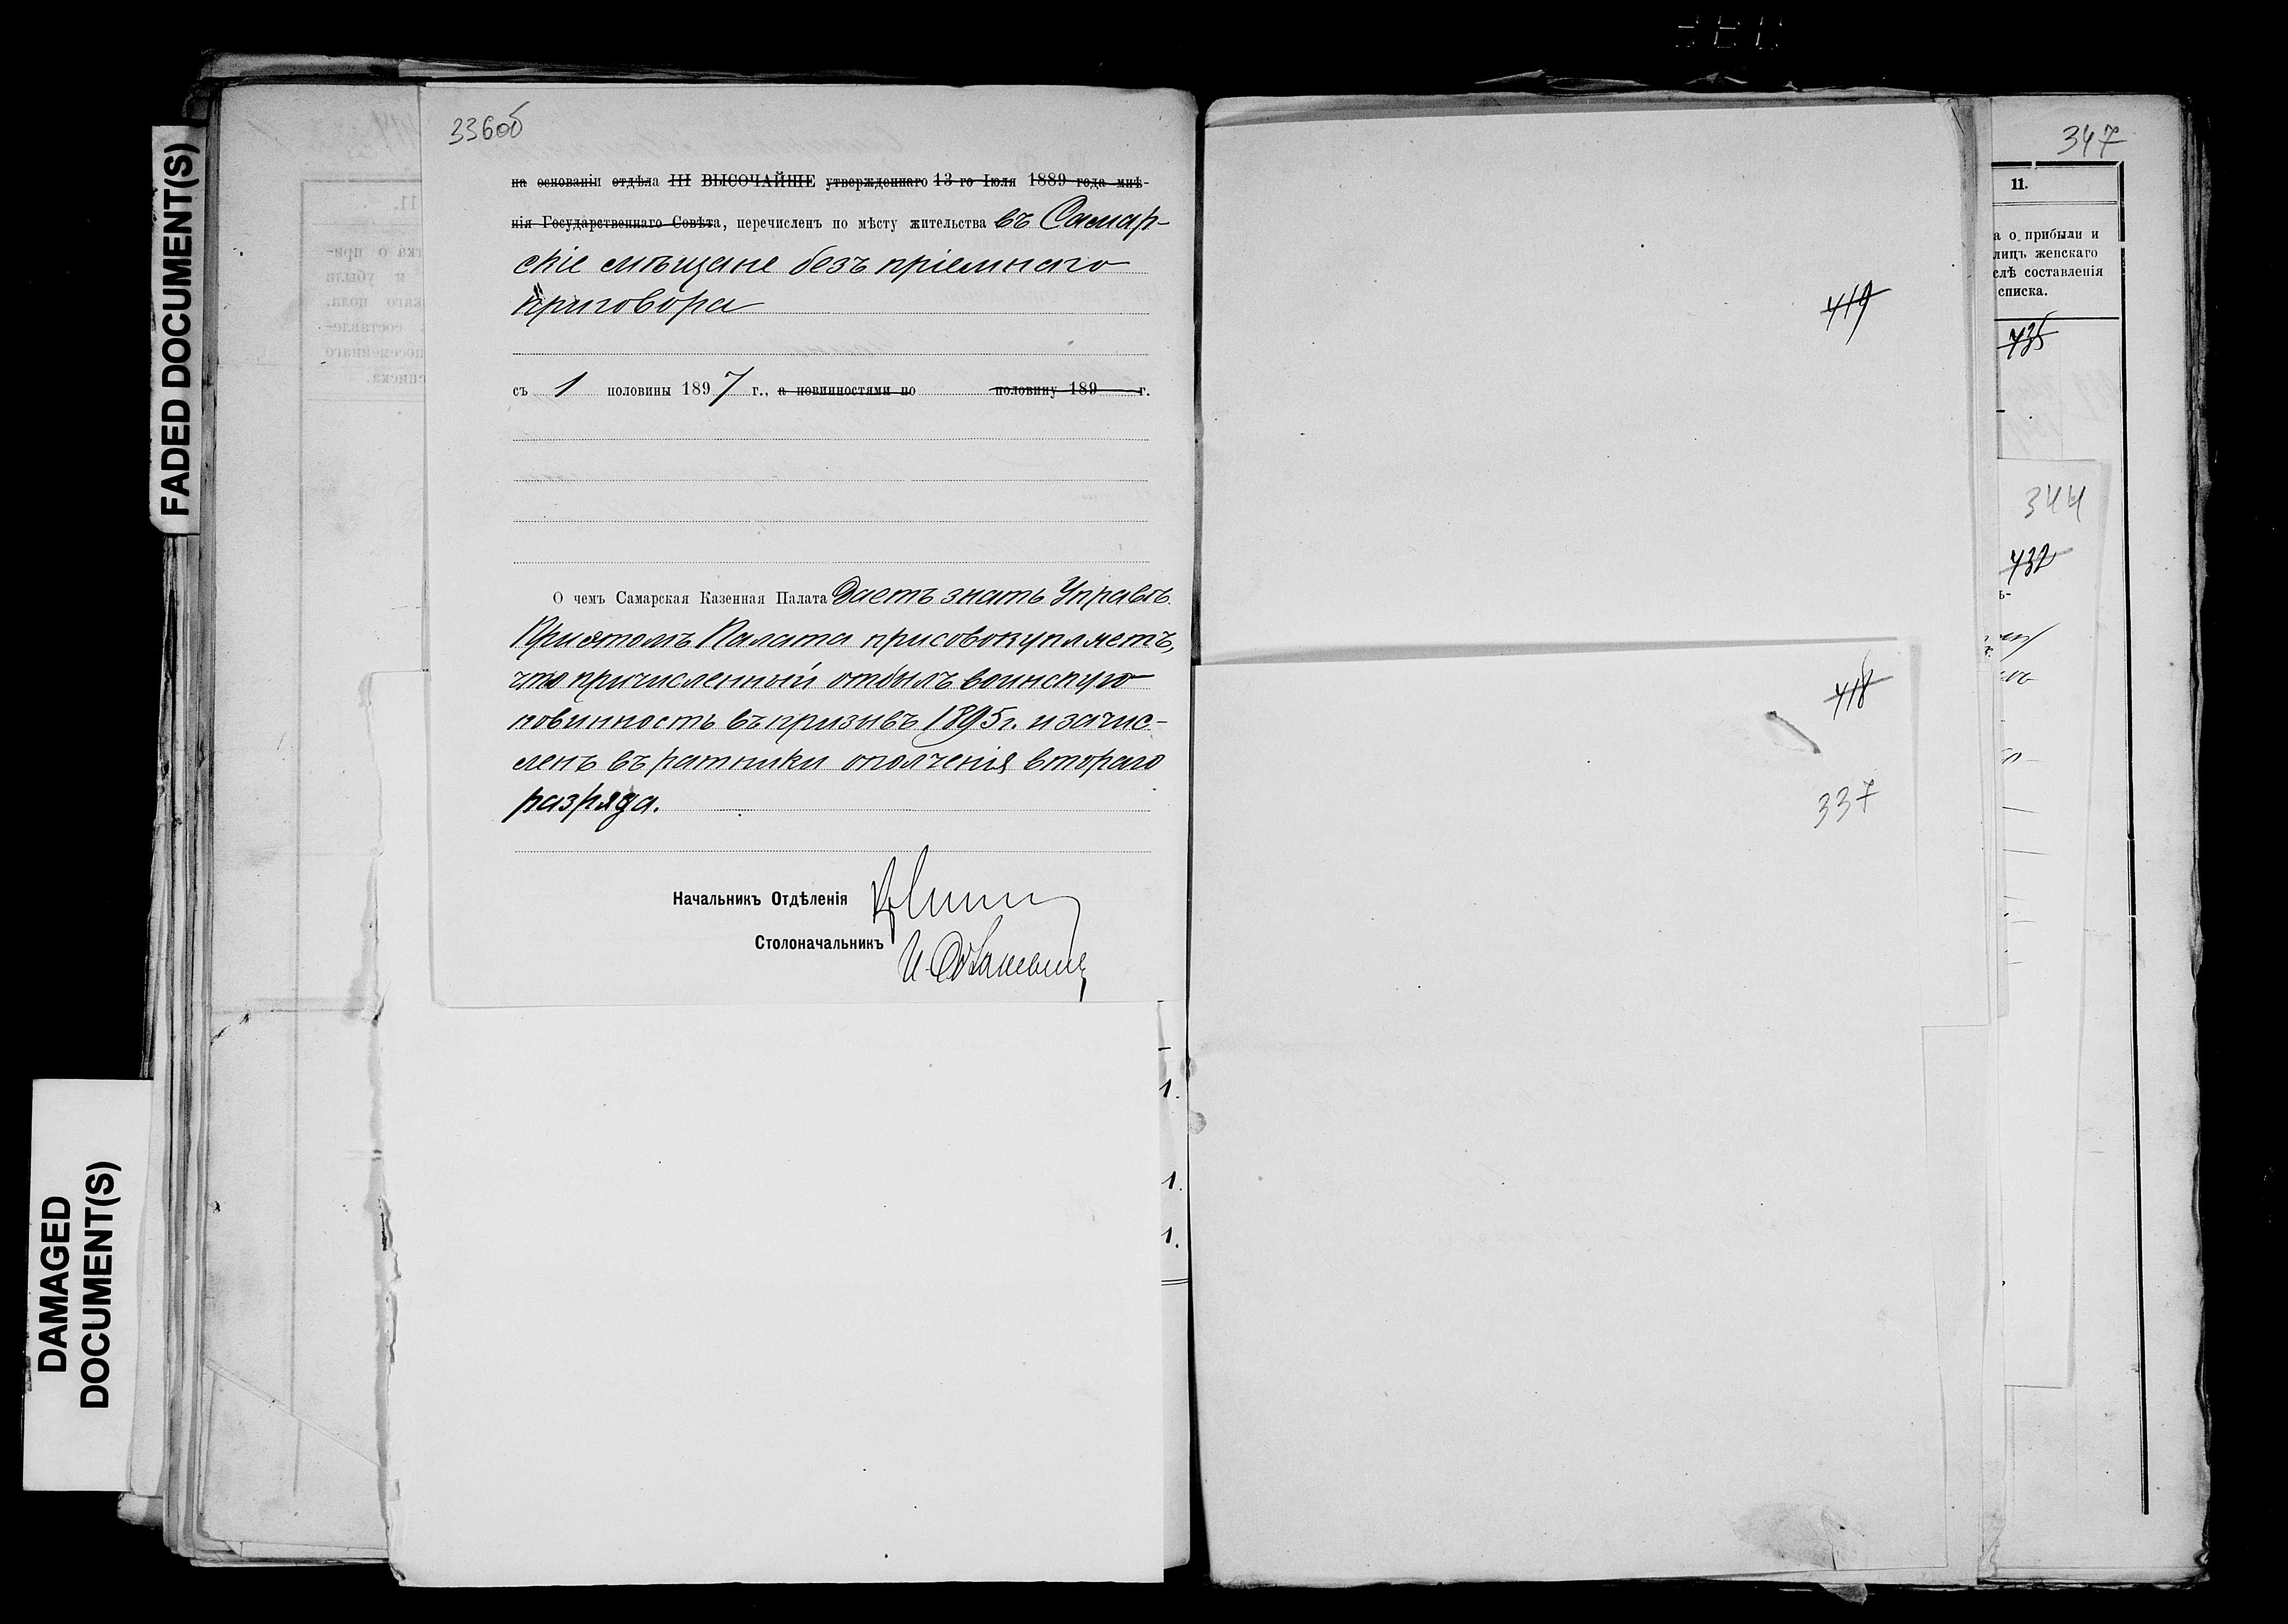 FADED DOCUMENT(S)
DAMAGED
DOCUMENT(S)
336об
на основаніи отдѣла III ВЫСОЧАЙШЕ утвержденнаго 13-го Іюля 1889 года мнѣ-
нія Государственнаго Совѣта, перечисленъ по мѣсту жительства въ Самар-
скіе мѣщане безъ пріемнаго
приговора
съ 1 половины 1897 г., а повинностями по половину 189 г.
О чемъ Самарская Казенная Палата даетъ знать Управѣ.
При этомъ Палата присовокупляетъ,
что причисленный отбылъ воинскую
повинность въ призывъ 1895 г. и зачис-
ленъ въ ратники ополченія втораго
разряда.
Начальникъ Отдѣленія
Столоначальникъ
1.
1.
1.
419
418
337
347
11.
а о прибыли и
лицъ женскаго
слѣ составленія
списка.
435
344
432